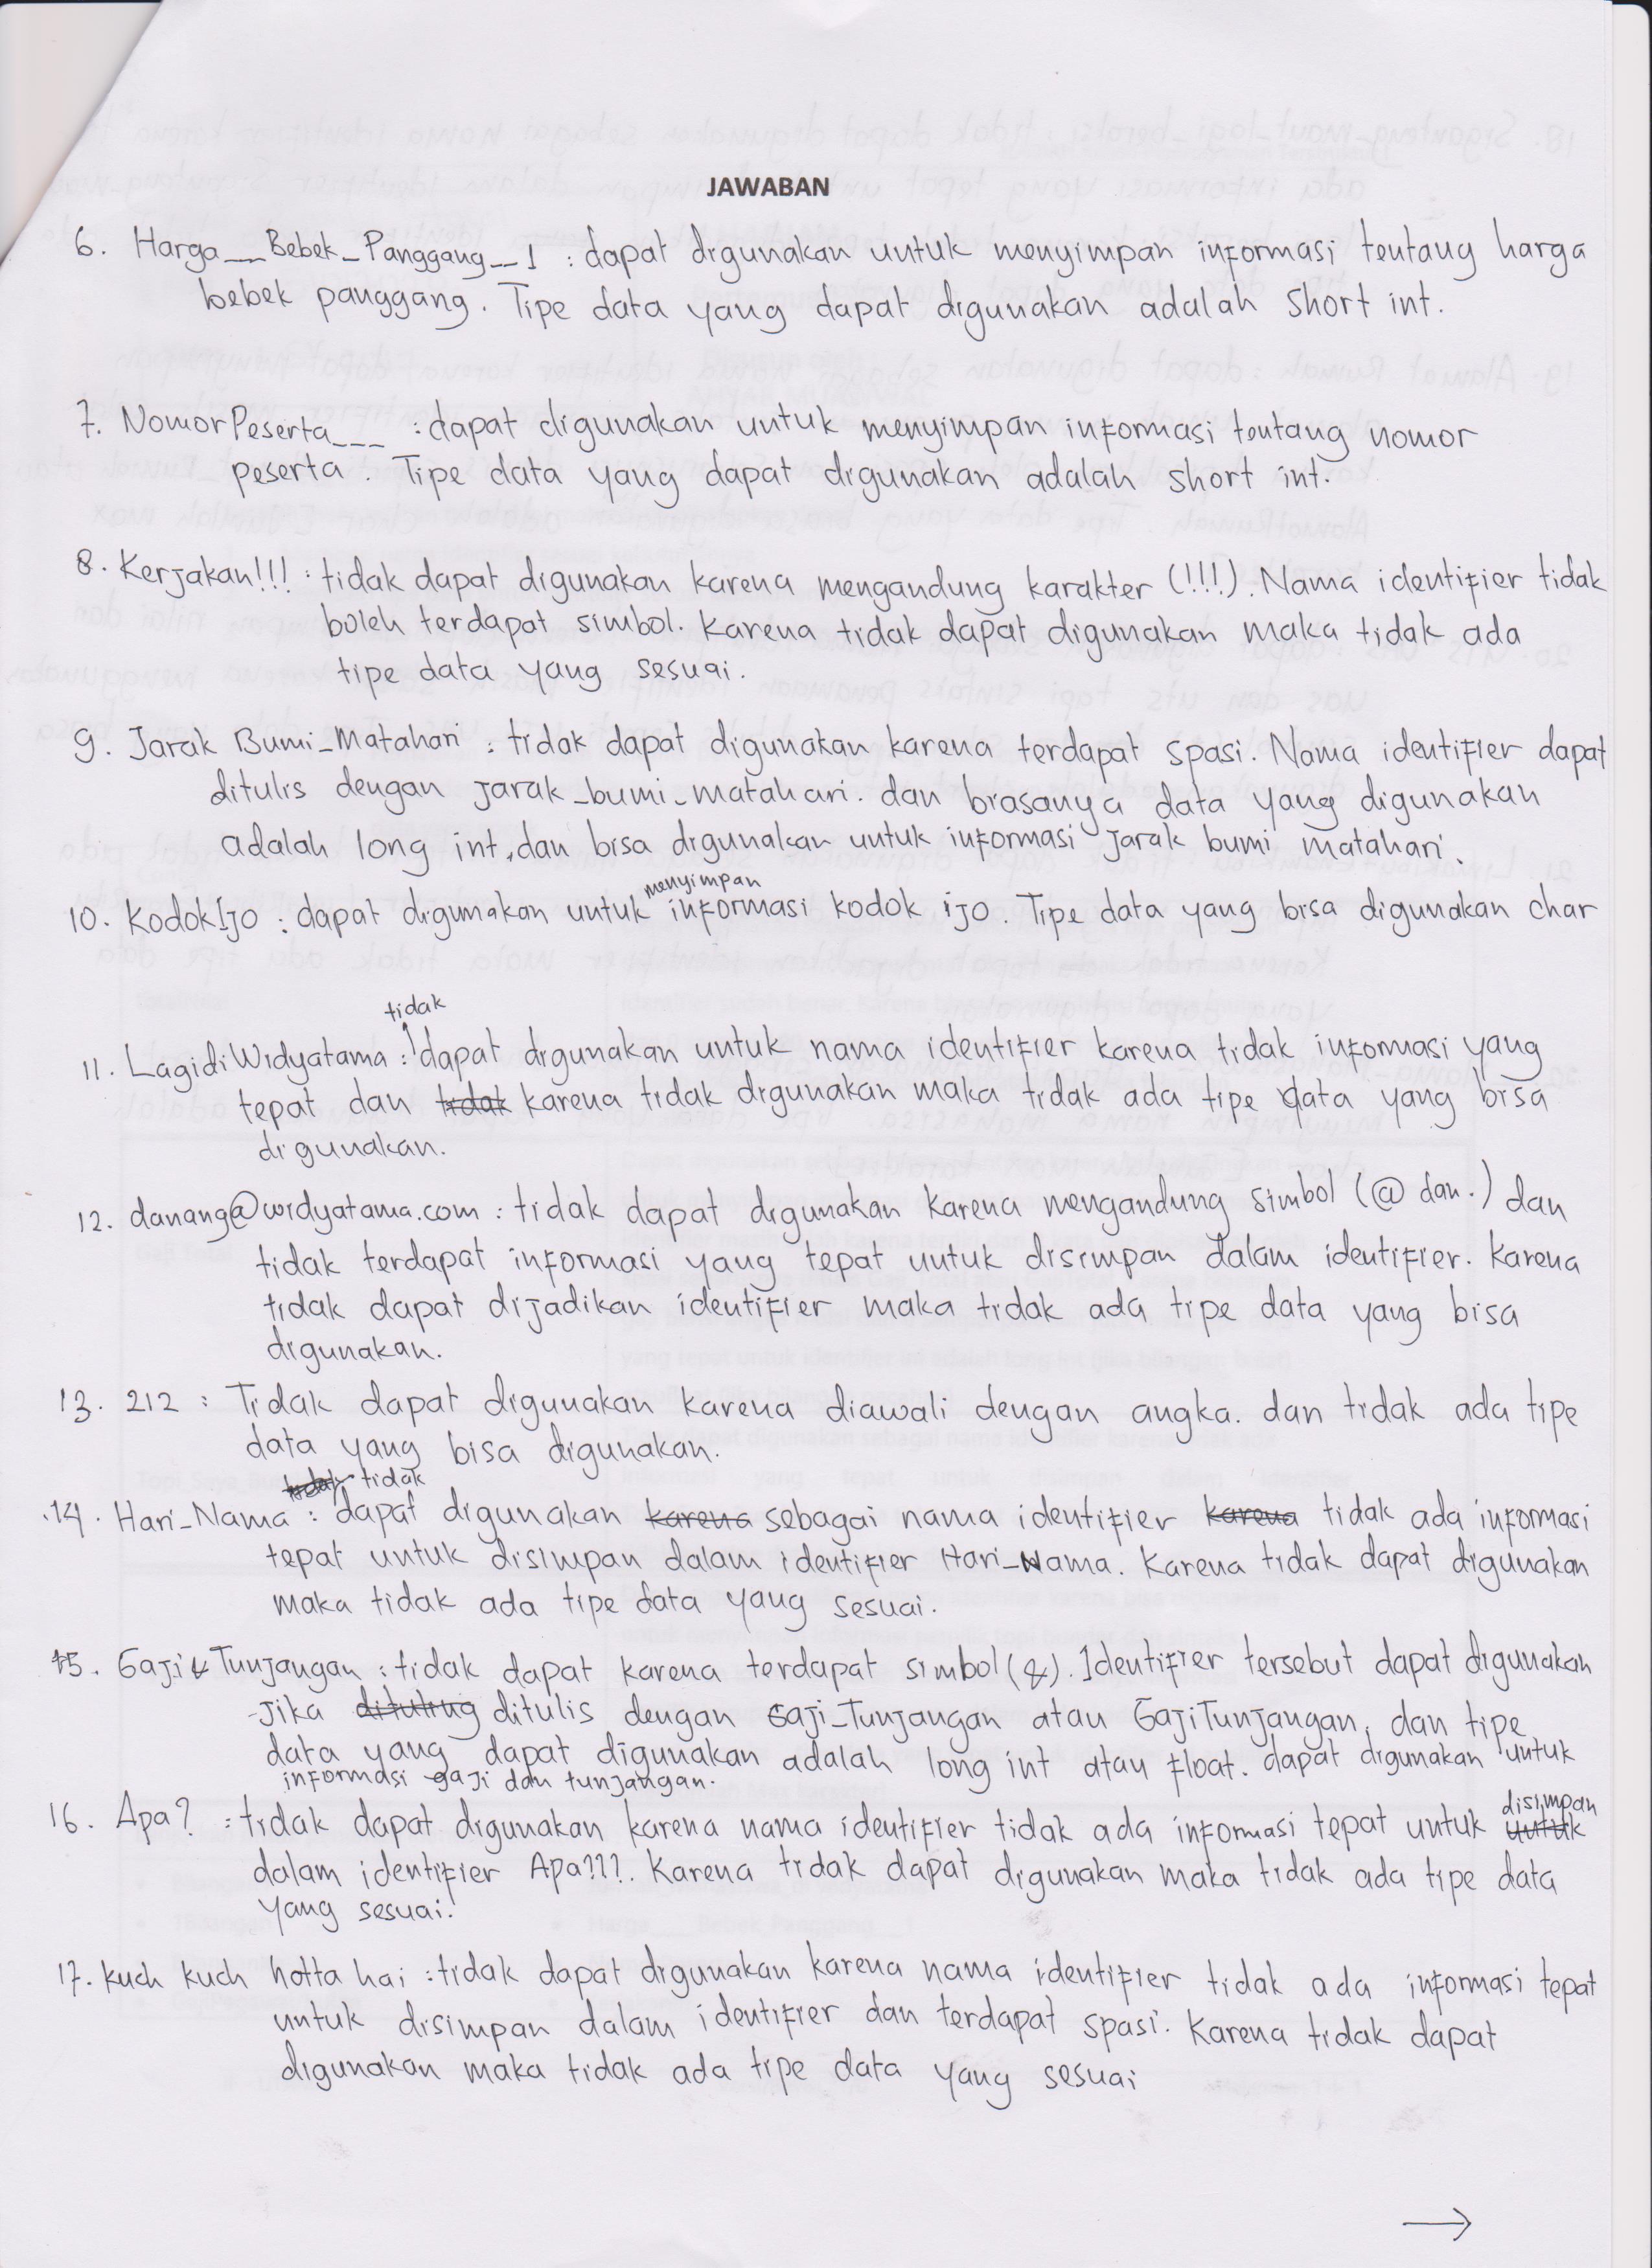 JAWABAN
6. Harga__Bebek_Panggang__1 : dapat digunakan untuk menyimpan informasi tentang harga
bebek panggang. Tipe data yang dapat digunakan adalah short int.
7. NomorPeserta___ : dapat digunakan untuk menyimpan informasi tentang nomor
peserta. Tipe data yang dapat digunakan adalah short int.
8. Kerjakan!!! : tidak dapat digunakan karena mengandung karakter (!!!). Nama identifier tidak
boleh terdapat simbol. Karena tidak dapat digunakan maka tidak ada
tipe data yang sesuai.
9. Jarak Bumi_Matahari : tidak dapat digunakan karena terdapat spasi. Nama identifier dapat
ditulis dengan jarak_bumi_matahari. dan biasanya data yang digunakan
adalah long int, dan bisa digunakan untuk informasi jarak bumi matahari.
10. KodokIjo : dapat digunakan untuk menyimpan informasi kodok ijo. Tipe data yang bisa digunakan char
11. LagidiWidyatama : tidak dapat digunakan untuk nama identifier karena tidak informasi yang
tepat dan tidak karena tidak digunakan maka tidak ada tipe data yang bisa
digunakan.
12. danang@widyatama.com : tidak dapat digunakan karena mengandung simbol (@ dan .) dan
tidak terdapat informasi yang tepat untuk disimpan dalam identifier. Karena
tidak dapat dijadikan identifier maka tidak ada tipe data yang bisa
digunakan.
13. 212 : Tidak dapat digunakan karena diawali dengan angka. dan tidak ada tipe
data yang bisa digunakan.
14. Hari_Nama : tidak dapat digunakan karena sebagai nama identifier karena tidak ada informasi
tepat untuk disimpan dalam identifier Hari_Nama. Karena tidak dapat digunakan
maka tidak ada tipe data yang sesuai.
15. Gaji&Tunjangan : tidak dapat karena terdapat simbol (&). Identifier tersebut dapat digunakan
jika ditulis dengan Gaji_Tunjangan atau GajiTunjangan, dan tipe
data yang dapat digunakan adalah long int atau float. dapat digunakan untuk
informasi gaji dan tunjangan.
16. Apa? : tidak dapat digunakan karena nama identifier tidak ada informasi tepat untuk untuk disimpan
dalam identifier Apa???. Karena tidak dapat digunakan maka tidak ada tipe data
yang sesuai.
17. kuch kuch hotta hai : tidak dapat digunakan karena nama identifier tidak ada informasi tepat
untuk disimpan dalam identifier dan terdapat spasi. Karena tidak dapat
digunakan maka tidak ada tipe data yang sesuai